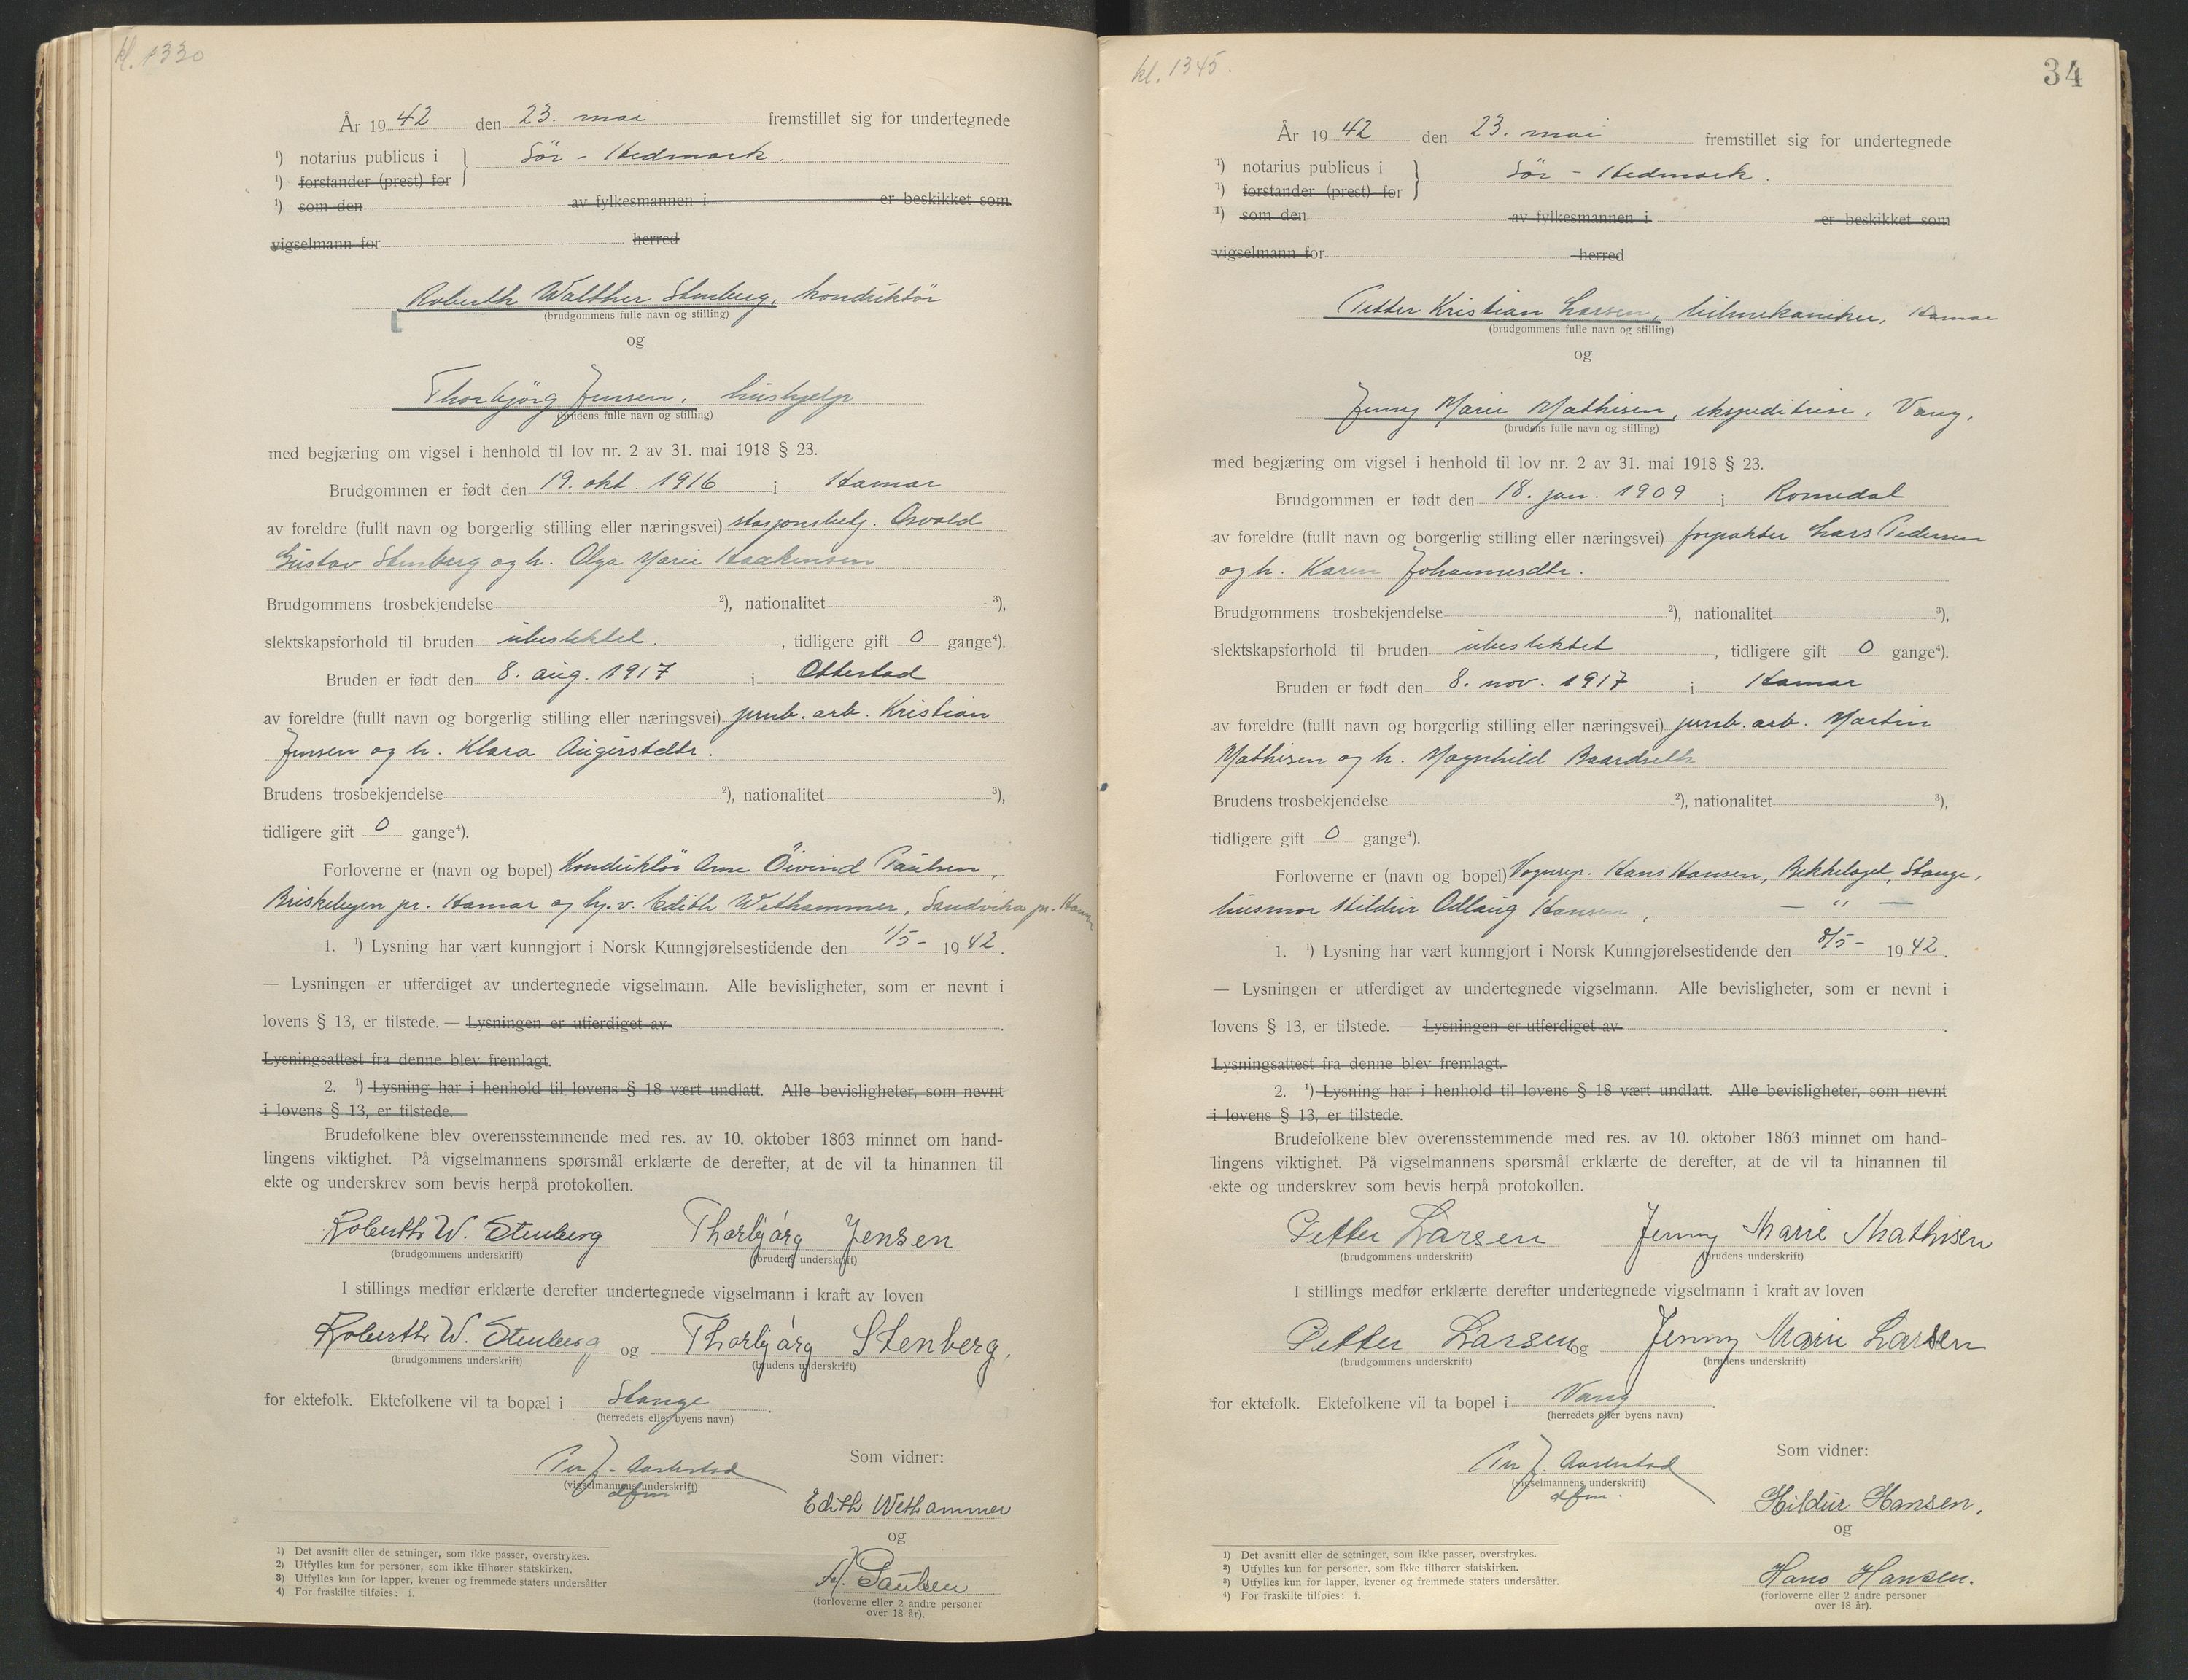 kl. 1330
År 1942 den 23. mai fremstillet sig for undertegnede
¹) notarius publicus i } Sör - Hedmark.
¹) forstander (prest) for
¹) som den av fylkesmannen i er beskikket som
vigselmann for herred
Roberth Walther Stenberg, konduktör
(brudgommens fulle navn og stilling)
og
Thorbjörg Jensen, hushjelp
(brudens fulle navn og stilling)
med begjæring om vigsel i henhold til lov nr. 2 av 31. mai 1918 § 23.
Brudgommen er født den 19. okt. 1916 i Hamar
av foreldre (fullt navn og borgerlig stilling eller næringsvei) stasjonsbetj. Osvald
Gustav Stenberg og h. Olga Marie Haakensen
Brudgommens trosbekjendelse ²), nationalitet ³),
slektskapsforhold til bruden ubeslektet. , tidligere gift 0 gange⁴).
Bruden er født den 8. aug. 1917 i Ottestad
av foreldre (fullt navn og borgerlig stilling eller næringsvei) jernb. arb. Kristian
Jensen og h. Klara Augustdtr.
Brudens trosbekjendelse ²), nationalitet ³),
tidligere gift 0 gange⁴).
Forloverne er (navn og bopel) Konduktör Arne Öivind Paulsen,
Briskebyen pr. Hamar og hj.v. Edith Wethammer, Sandvika pr. Hamar
1. ¹) Lysning har vært kunngjort i Norsk Kunngjørelsestidende den 1/5 - 1942.
— Lysningen er utferdiget av undertegnede vigselmann. Alle bevisligheter, som er nevnt i
lovens § 13, er tilstede. — Lysningen er utferdiget av .
Lysningsattest fra denne blev fremlagt.
2. ¹) Lysning har i henhold til lovens § 18 vært undlatt. Alle bevisligheter, som nevnt
i lovens § 13, er tilstede.
Brudefolkene blev overensstemmende med res. av 10. oktober 1863 minnet om hand-
lingens viktighet. På vigselmannens spørsmål erklærte de derefter, at de vil ta hinannen til
ekte og underskrev som bevis herpå protokollen.
Roberth W. Stenberg Thorbjörg Jensen
(brudgommens underskrift) (brudens underskrift)
I stillings medfør erklærte derefter undertegnede vigselmann i kraft av loven
Roberth W. Stenberg og Thorbjörg Stenberg.
(brudgommens underskrift) (brudens underskrift)
for ektefolk. Ektefolkene vil ta bopæl i Stange .
(herredets eller byens navn)
Per J. Aarkstad
(vigselmannens underskrift)
dfm
Som vidner:
Edith Wethammer
og
A. Paulsen
(forloverne eller 2 andre personer
over 18 år).
1) Det avsnitt eller de setninger, som ikke passer, overstrykes.
2) Utfylles kun for personer, som ikke tilhører statskirken.
3) Utfylles kun for lapper, kvener og fremmede staters undersåtter
4) For fraskilte tilføies: f.
kl. 1345.
34
År 1942 den 23. mai fremstillet sig for undertegnede
¹) notarius publicus i } Sör - Hedmark.
¹) forstander (prest) for
¹) som den av fylkesmannen i er beskikket som
vigselmann for herred
Petter Kristian Larsen, bilmekaniker, Hamar
(brudgommens fulle navn og stilling)
og
Jenny Marie Mathisen, ekspeditrise, Vang.
(brudens fulle navn og stilling)
med begjæring om vigsel i henhold til lov nr. 2 av 31. mai 1918 § 23.
Brudgommen er født den 18. jan. 1909 i Romedal
av foreldre (fullt navn og borgerlig stilling eller næringsvei) forpakter Lars Pedersen
og h. Karen Johannesdtr.
Brudgommens trosbekjendelse ²), nationalitet ³),
slektskapsforhold til bruden ubeslektet , tidligere gift 0 gange⁴).
Bruden er født den 8. nov. 1917 i Hamar
av foreldre (fullt navn og borgerlig stilling eller næringsvei) jernb. arb. Martin
Mathisen og h. Magnhild Baardseth
Brudens trosbekjendelse ²), nationalitet ³),
tidligere gift 0 gange⁴).
Forloverne er (navn og bopel) Vognrep. Hans Hansen, Bekkelaget, Stange,
husmor Hildur Odlaug Hansen, — " —
1. ¹) Lysning har vært kunngjort i Norsk Kunngjørelsestidende den 8/5 - 1942.
— Lysningen er utferdiget av undertegnede vigselmann. Alle bevisligheter, som er nevnt i
lovens § 13, er tilstede. — Lysningen er utferdiget av .
Lysningsattest fra denne blev fremlagt.
2. ¹) Lysning har i henhold til lovens § 18 vært undlatt. Alle bevisligheter, som nevnt
i lovens § 13, er tilstede.
Brudefolkene blev overensstemmende med res. av 10. oktober 1863 minnet om hand-
lingens viktighet. På vigselmannens spørsmål erklærte de derefter, at de vil ta hinannen til
ekte og underskrev som bevis herpå protokollen.
Petter Larsen Jenny Marie Mathisen
(brudgommens underskrift) (brudens underskrift)
I stillings medfør erklærte derefter undertegnede vigselmann i kraft av loven
Petter Larsen og Jenny Marie Larsen
(brudgommens underskrift) (brudens underskrift)
for ektefolk. Ektefolkene vil ta bopel i Vang .
(herredets eller byens navn)
Per J. Aarkstad
(vigselmannens underskrift)
dfm.
Som vidner:
Hildur Hansen.
og
Hans Hansen.
(forloverne eller 2 andre personer
over 18 år).
¹) Det avsnitt eller de setninger, som ikke passer, overstrykes.
²) Utfylles kun for personer, som ikke tilhører statskirken.
³) Utfylles kun for lapper, kvener og fremmede staters undersåtter.
⁴) For fraskilte tilføies: f.